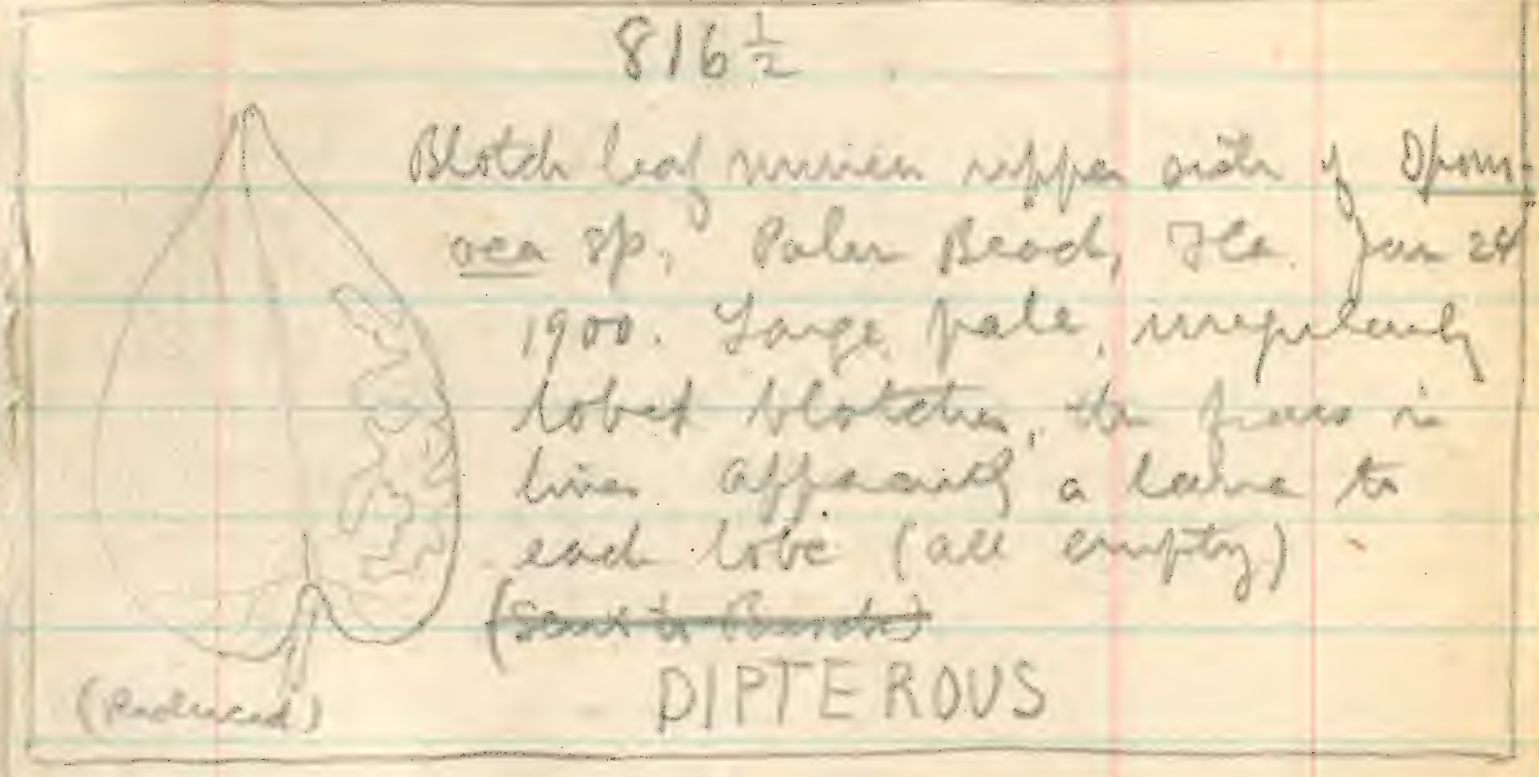 816 1/2
Blotch leaf mines upper side of Ipom-
oea sp. Palm Beach, Fla. Jan 24
1900. Large, pale, irregularly
lobed blotches, the frass in
lines apparently a larva to
each lobe (all empty)
(Sent to
DIPTEROUS
(Reduced)